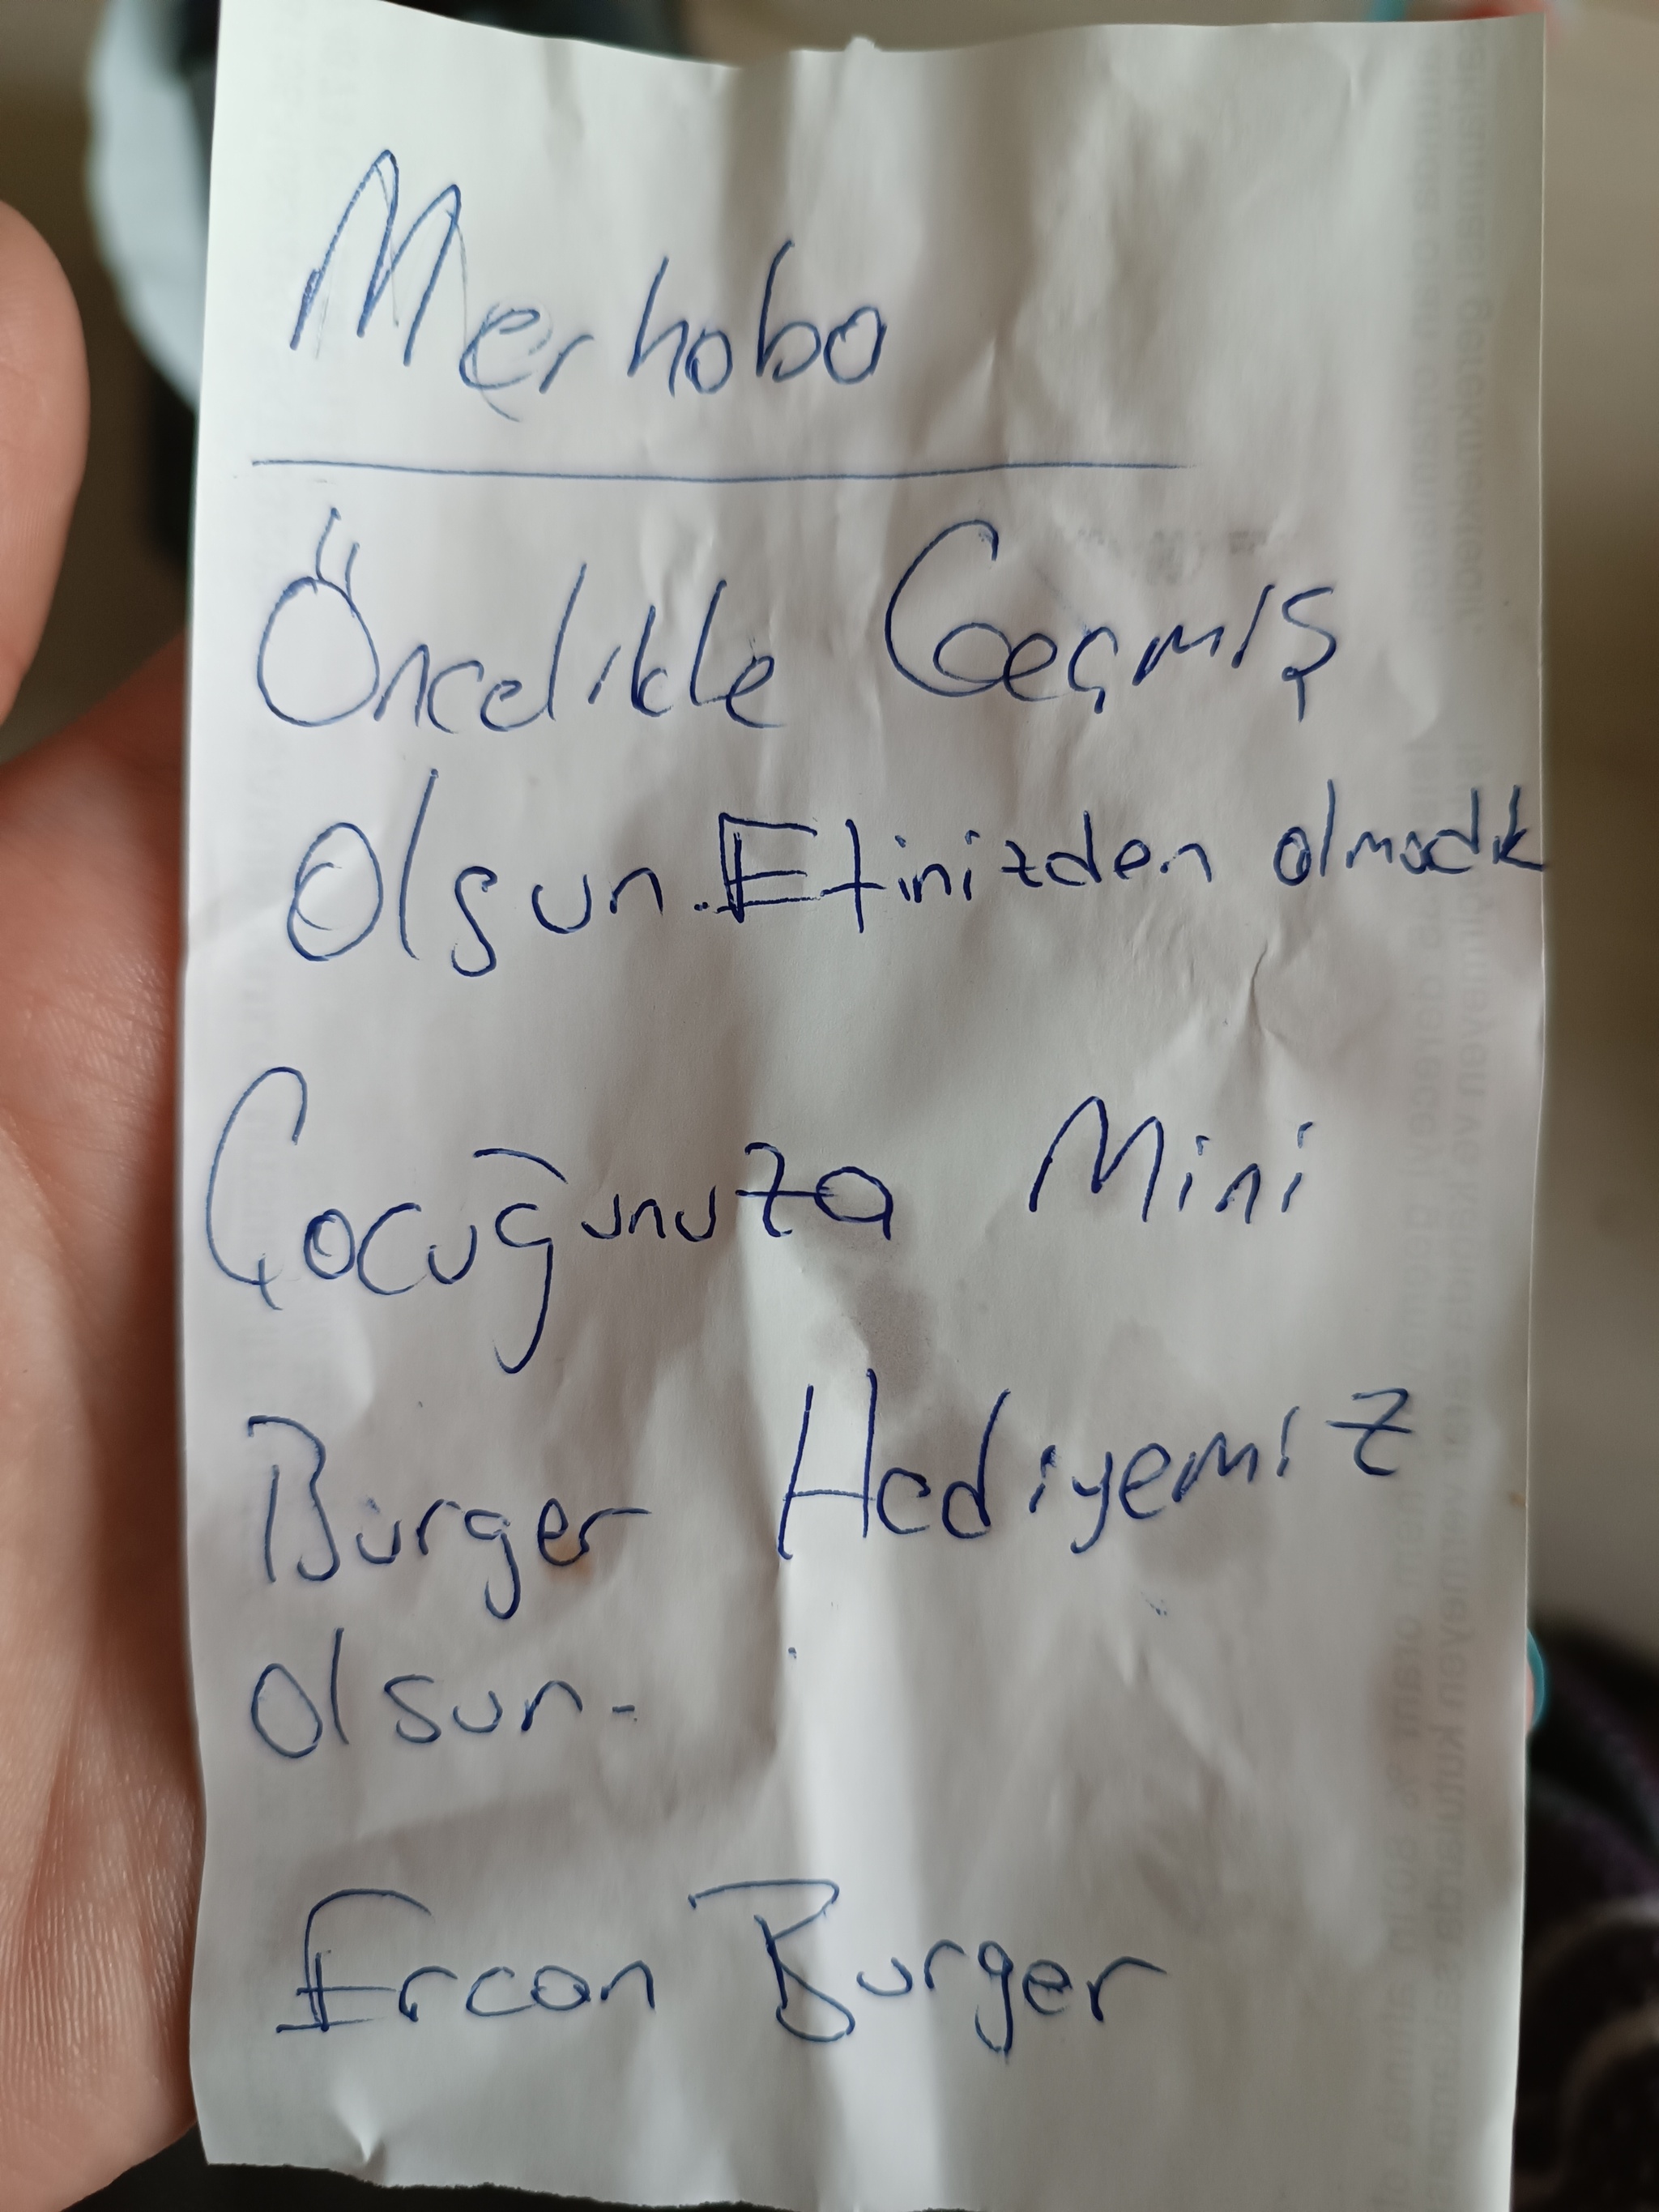 Merhaba
Öncelikle Geçmiş
Olsun. Etinizden olmadık
Çocuğunuza Mini
Burger Hediyemiz
olsun.
Ercan Burger